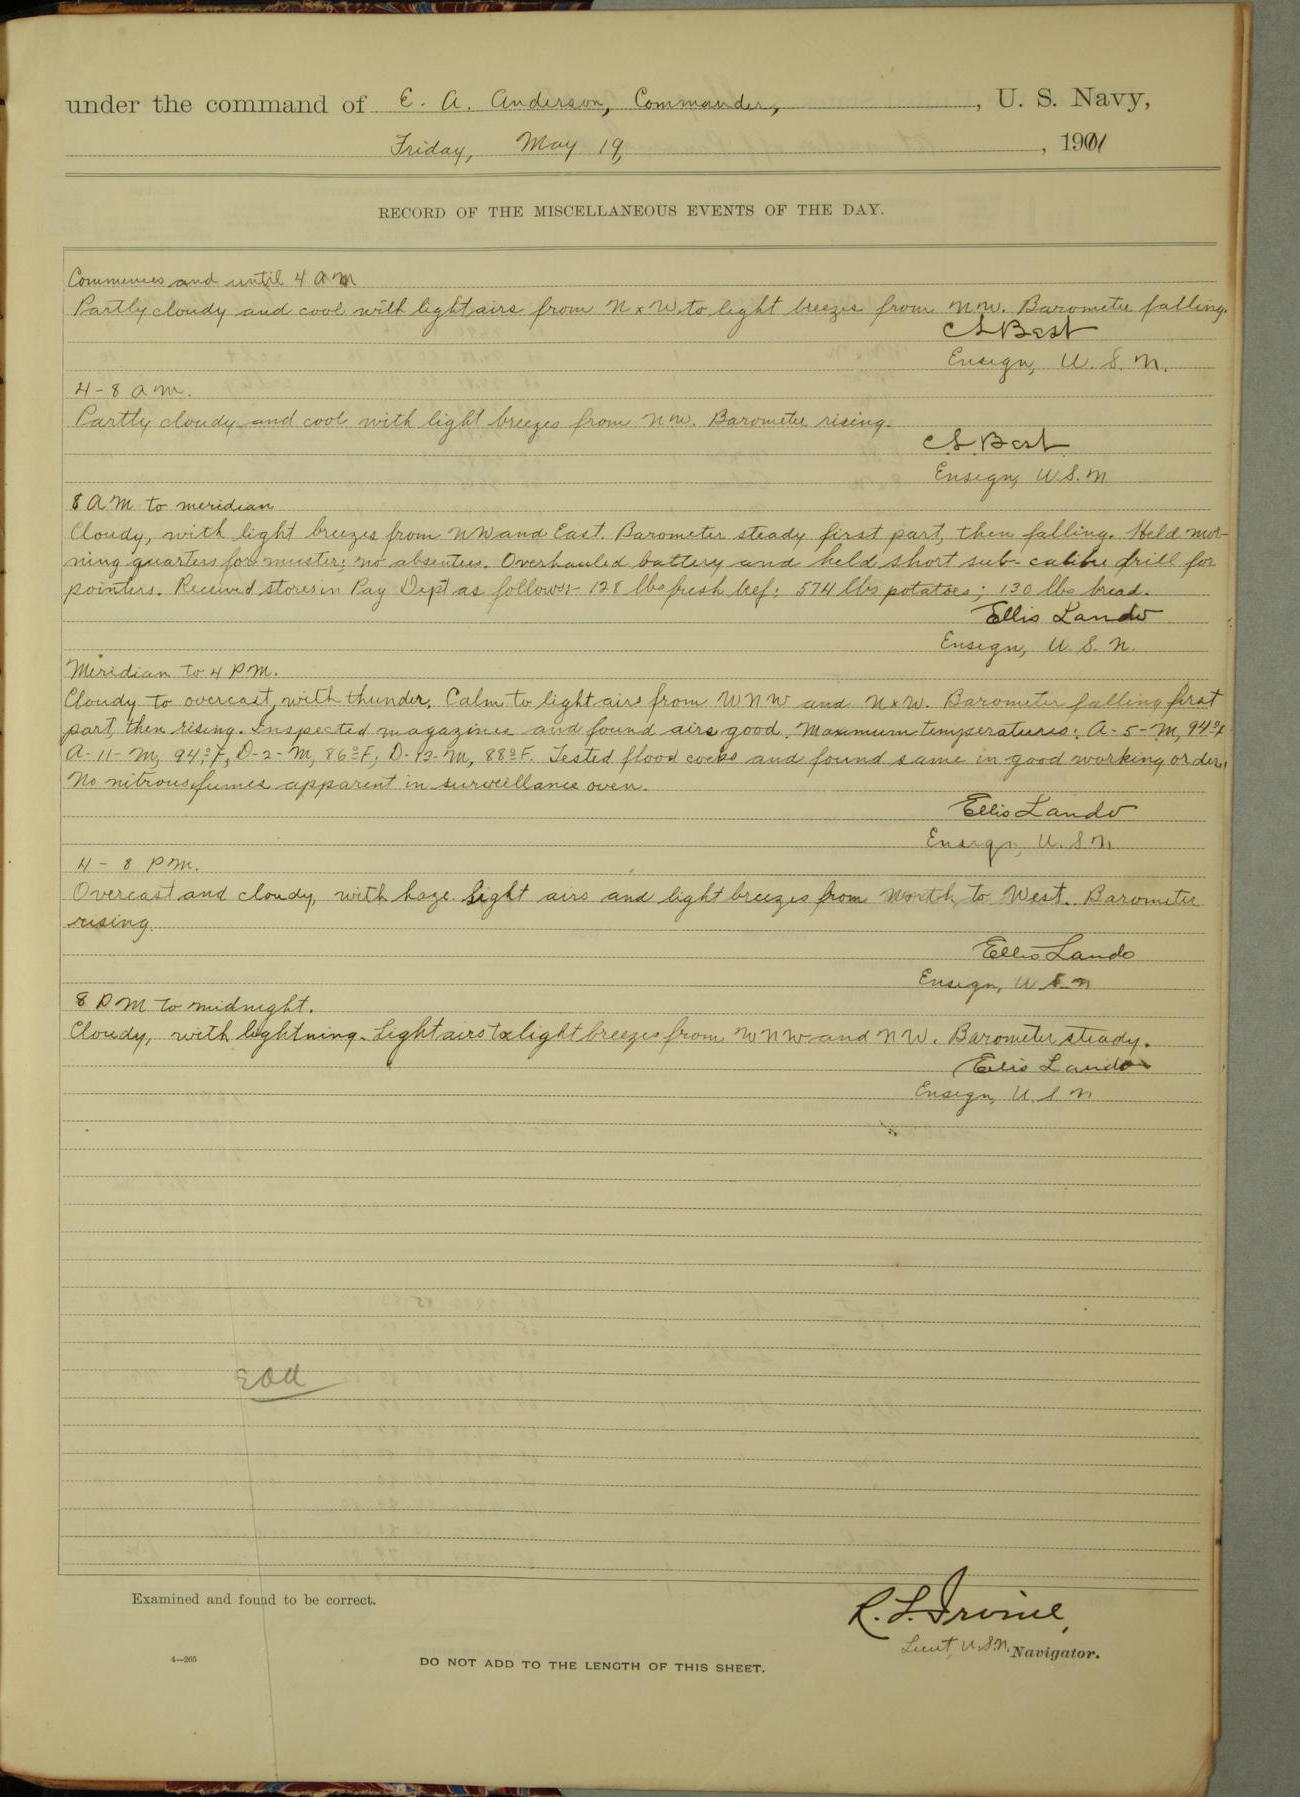 under the command of E. A. Anderson, Commander, , U. S. Navy,
Friday, May 19, , 1911
RECORD OF THE MISCELLANEOUS EVENTS OF THE DAY.
Commences and until 4 A M
Partly cloudy and cool with light airs from N x W to light breezes from NW. Barometer falling.
C S Best
Ensign, U. S. N.
4-8 a m.
Partly cloudy and cool with light breezes from NW. Barometer rising.
C. S. Best
Ensign, U.S.N
8 A M to meridian
Cloudy, with light breezes from NW and East. Barometer steady first part, then falling. Held mor-
ning quarters for muster; no absentees. Overhauled battery and held short sub-calibre drill for
pointers. Received stores in Pay Dept as follows:- 128 lbs fresh beef; 574 lbs potatoes; 130 lbs bread.
Ellis Lando
Ensign, U. S. N.
Meridian to 4 P M.
Cloudy to overcast, with thunder. Calm to light airs from WNW and N x W. Barometer falling first
part, then rising. Inspected magazines and found airs good. Maximum temperatures: A-5-M, 94°F
A-11-M, 94°F, D-2-M, 86°F, D-13-M, 88°F. Tested flood cocks and found same in good working order.
No nitrous fumes apparent in surveillance oven.
Ellis Lando
Ensign, U. S N
4 - 8 P M.
Overcast and cloudy, with haze. Light airs and light breezes from North to West. Barometer
rising.
Ellis Lando
Ensign, U S N
8 P M to midnight.
Cloudy, with lightning. Light airs to light breezes from WNW and NW. Barometer steady.
Ellis Lando
Ensign, U. S N
Examined and found to be correct.
R. L. Irvine,
Lieut, U.S.N. Navigator.
4—265
DO NOT ADD TO THE LENGTH OF THIS SHEET.